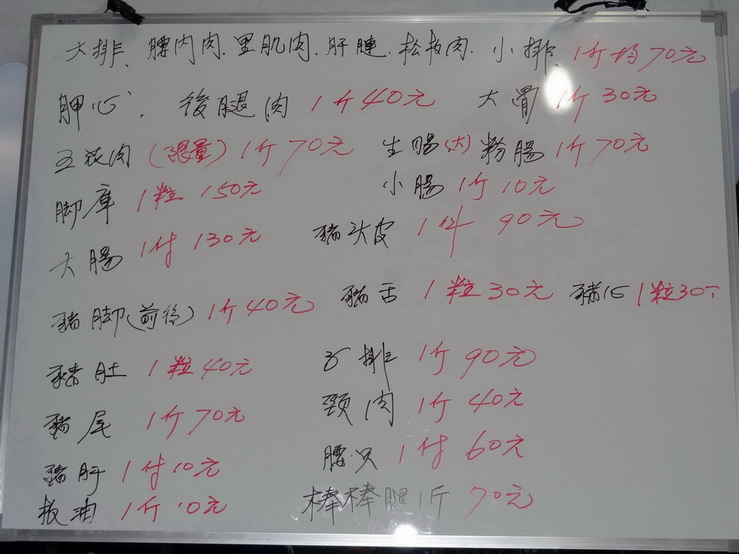 大排、腰内肉、里肌肉、肝連、松板肉、小排、1斤均70元
胛心、後腿肉 1斤40元 大骨 1斤30元
五花肉(限量)1斤70元 生腸(大)粉腸1斤70元
腳庫 1粒 150元 小腸 1斤10元
大腸 1付 130元 豬头皮 1斤 90元
豬腳(前後)1斤40元 豬舌 1粒30元 豬心 1粒30
豬肚 1粒40元 子排 1斤90元
豬尾 1斤70元 頸肉 1斤40元
豬肝 1付10元 腰只 1付60元
板油 1斤10元 棒棒腿1斤 70元